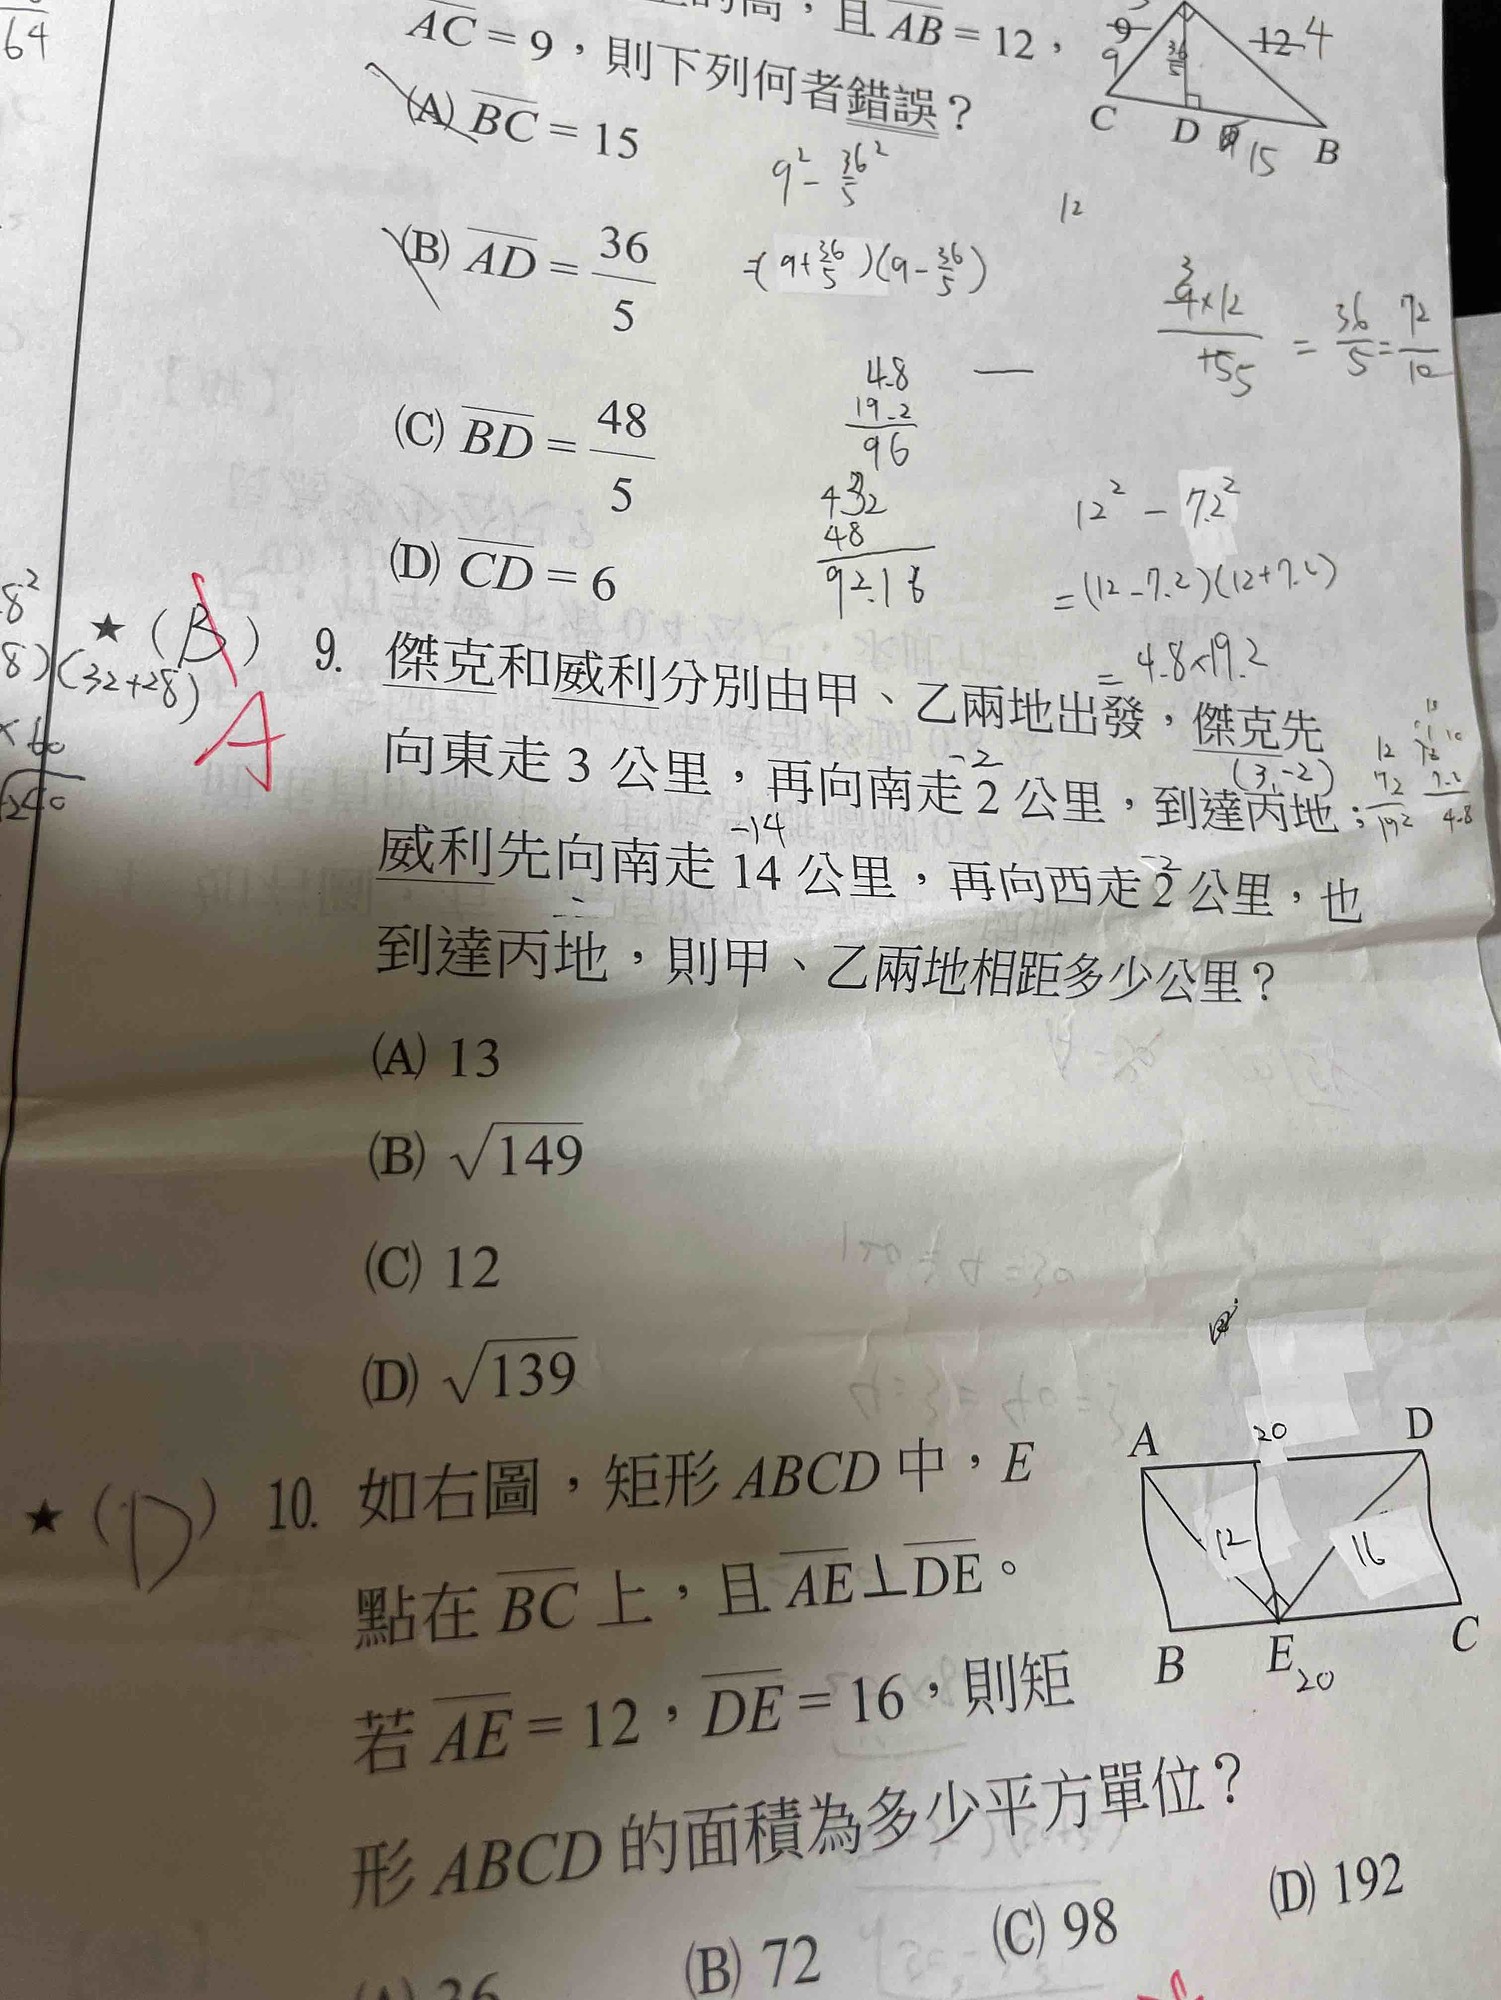 64
的高，且 AB = 12，
AC = 9，則下列何者錯誤？
9
9
36/5
12 4
C D 15 B
(A) BC = 15
9² - 36/5²
12
(B) AD = 36/5
=(9+36/5)(9-36/5)
3
= 36/5 = 72/10
(C) BD = 48/5
4.8
19.2
96
432
48
92.16
12² - 7.2²
(D) CD = 6
=(12-7.2)(12+7.2)
= 4.8×19.2
8²
8)(32+28)
×60
★ (B) 9. 傑克和威利分別由甲、乙兩地出發，傑克先
A
向東走 3 公里，再向南走 2 公里，到達丙地；
-2
(3,-2)
12
7.2
19.2
7.2
4.8
威利先向南走 14 公里，再向西走 2 公里，也
-14
-2
到達丙地，則甲、乙兩地相距多少公里？
(A) 13
(B) √149
(C) 12
(D) √139
★ (D) 10. 如右圖，矩形 ABCD 中，E
點在 BC 上，且 AE⊥DE。
若 AE = 12，DE = 16，則矩
形 ABCD 的面積為多少平方單位？
A 20 D
12 16
B E 20 C
(A) 36 (B) 72 (C) 98 (D) 192